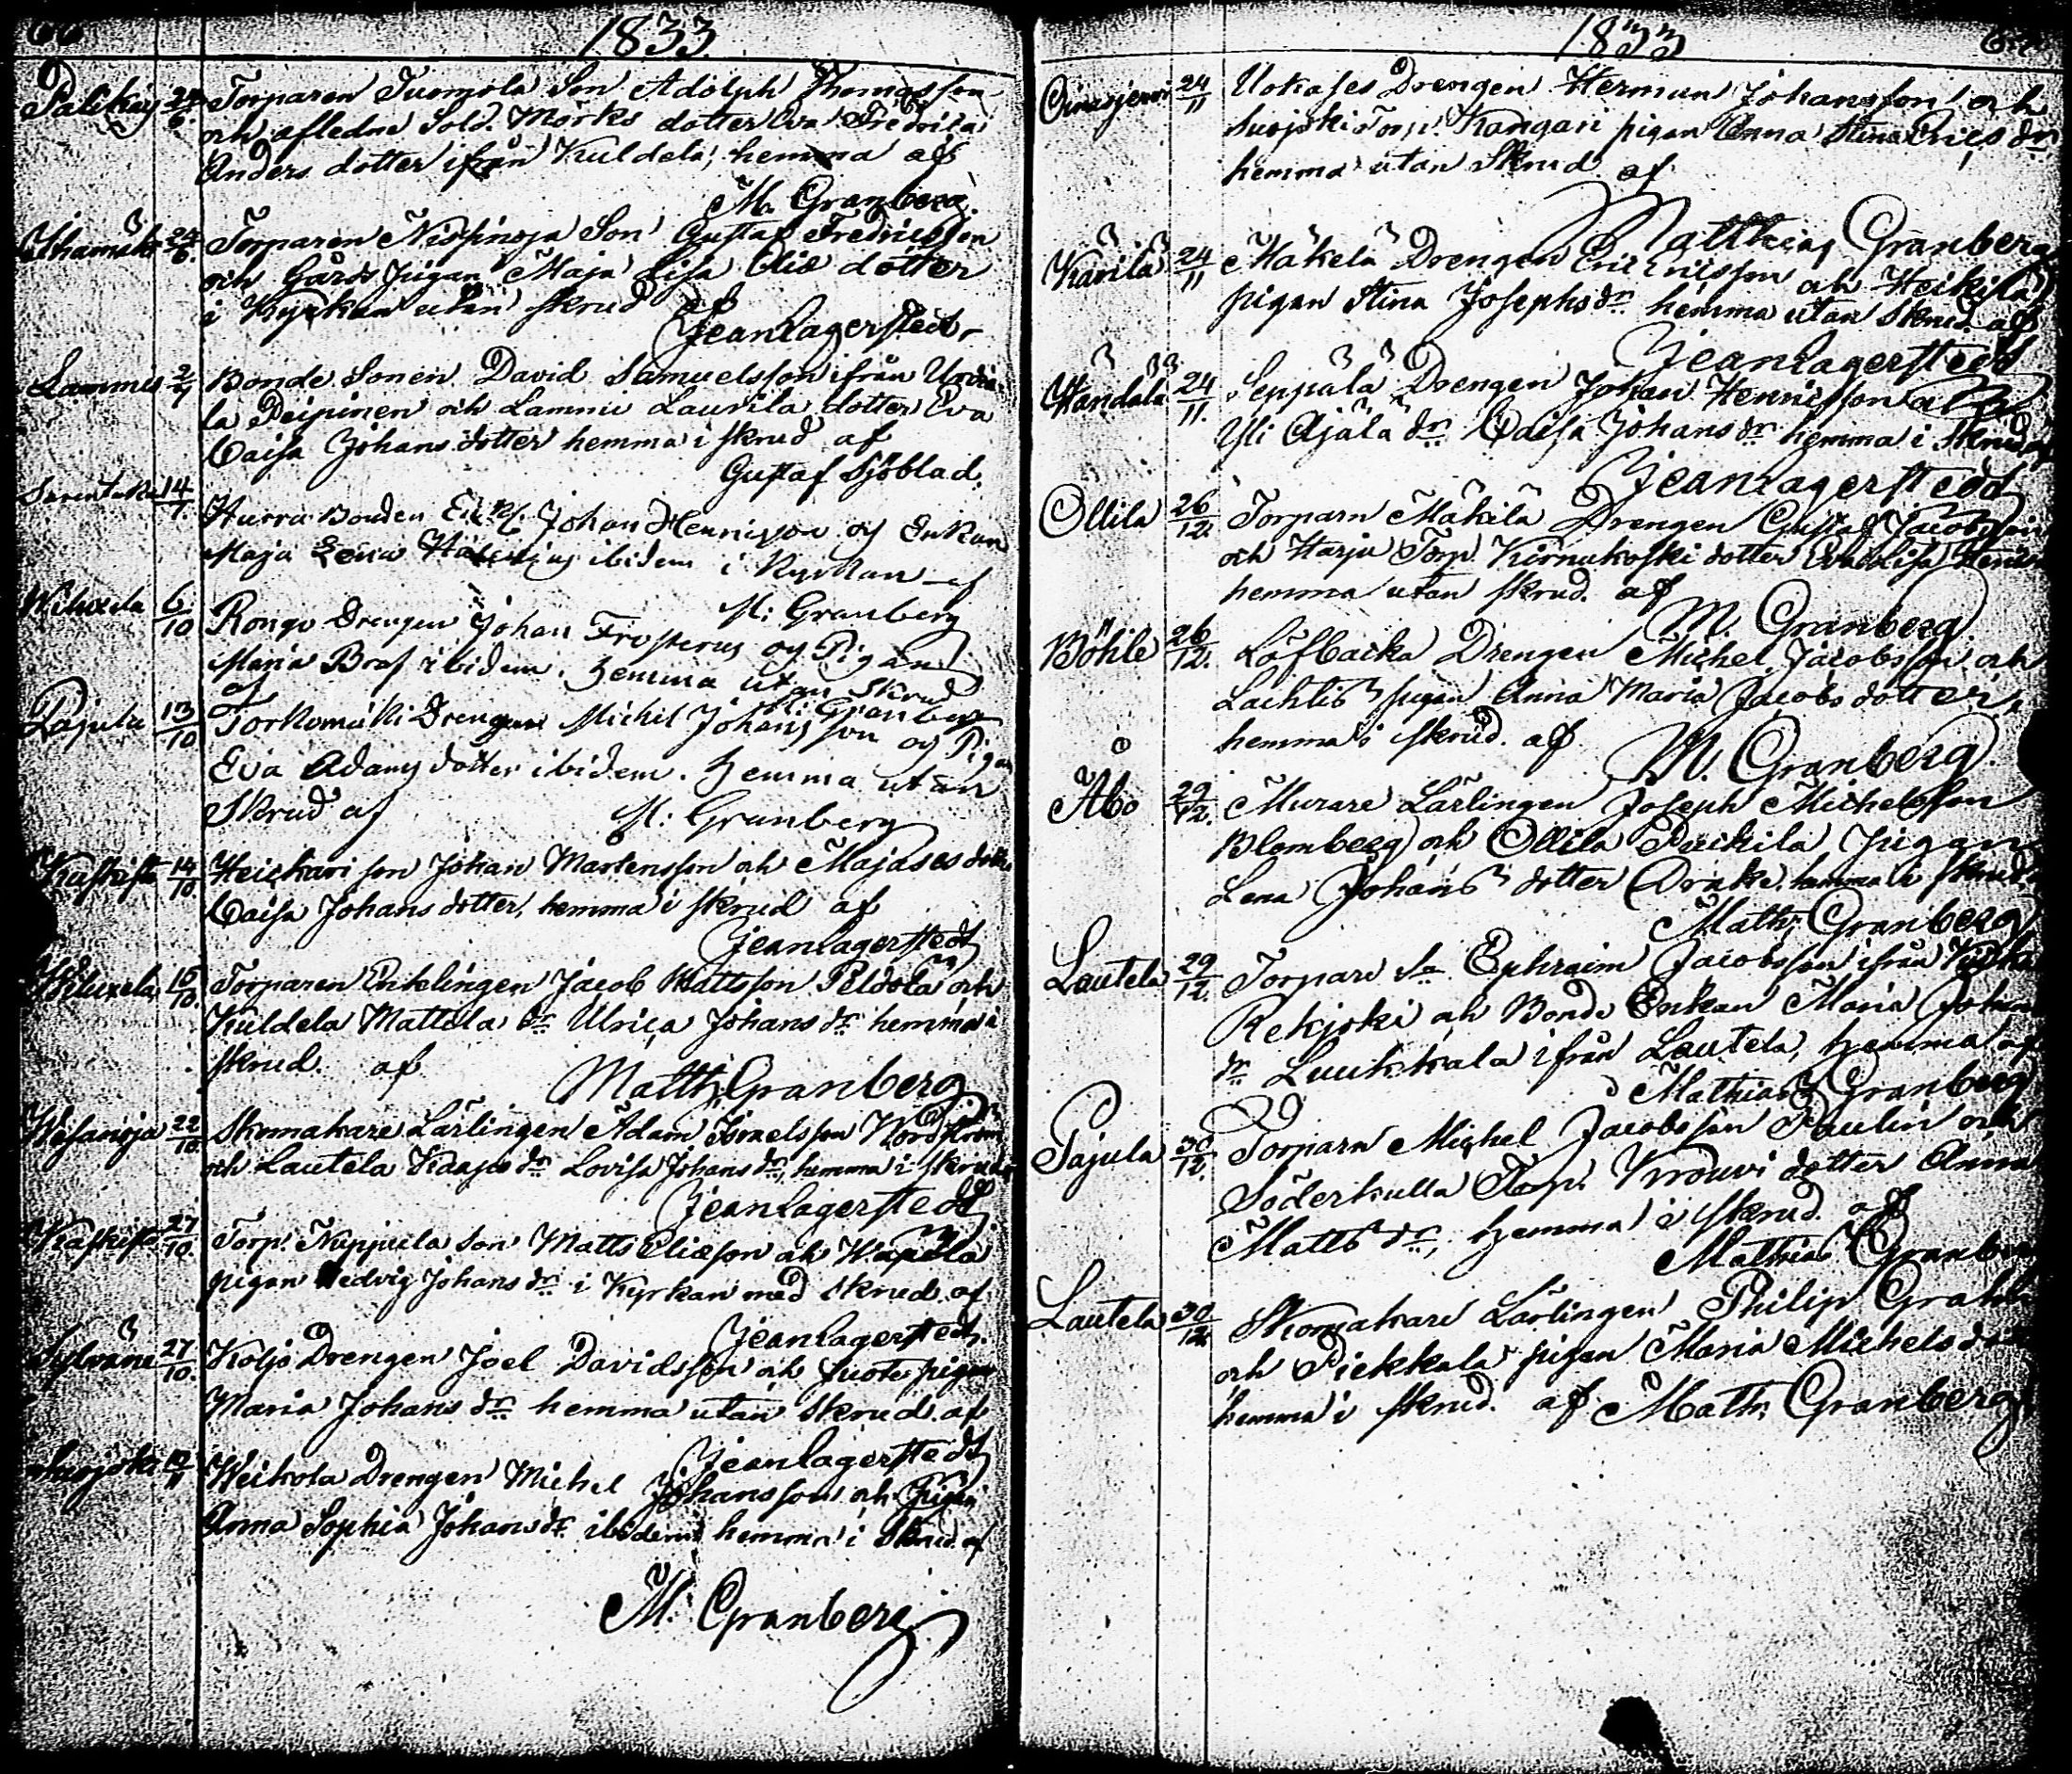 66
1833
Palikais 24/6 Torparen Tuomola Son Adolph Thomasson
och afledne Sold. Mörks dotter Eva Fredrica
Anders dotter ifrån Kuldela, hemma af
M. Granberg.
24/6 Torparen Son Gustaf Fredricsson
och Gårds Pigan Maja Lisa Eliæ dotter
i Kyrkan utan skrud af
Jean Lagerstedt
Lammis 2/7 Bonde Sonen David Samuelsson ifrån
la och Lammis Laurila dotter Eva
Caisa Johans dotter hemma i skrud af
Gustaf Sjöblad.
14/7 Hurra Bonden Johan Henricsson og Enkan
Maja Lena ibidem i Kyrkan af
M: Granberg
Wiluxela 6/10 Rongo Drengen Johan Frosterus og Pigan
Maria Bras ibidem. hemma utan Skrud
af M: Granberg
Pajula 13/10 Torkomäki Drengen Michel Johansson og Pigan
Eva Adams dotter ibidem. hemma utan
Skrud af M: Granberg
Kaskisto 14/10 Heickari son Johan Martensson och dotter
Caisa Johans dotter, hemma i skrud af
Jean Lagerstedt
Wiluxela 15/10. Torparen Enklingen Jacob Mattsson Peldola och
Kuldela Mattila dr Ulrica Johans dr hemma i
skrud. af Matth. Granberg
Wesanoja 22/10 Skomakare Lärlingen Adam Israelsson Nordström
och Lautela dr Lovisa Johans dr, hemma i skrud
Jean Lagerstedt
Kaskisto 27/10. Torp. Nuppula Son Matts Eliæson och
pigan Hedvig Johans dr i Kyrkan med skrud. af
Jean Lagerstedt.
Sylväne 27/10. Koljo Drengen Joel Davidsson och pigan
Maria Johans dr hemma utan skrud. af
Jean Lagerstedt
Weikola Drengen Michel Johansson och Pigan
Anna Sophia Johans dr ibidem hemma i Skrud. af
M. Granberg
1833
Oinasjervi 24/11 Drengen Herman Johansson och
Torp. Kangari pigan Anna Stina Erics dr
hemma utan Skrud af
Matthias Granberg
Kärilä 24/11 Mäkelä Drengen Eric Ericsson och Heikilä
pigan Stina Josephs dr hemma utan Skrud. af
Jean Lagerstedt
Händälä 24/11. Seppälä Drengen Johan Henricsson och
Yli Äjälä dr Caisa Johans dr hemma i Skrud af
Jean Lagerstedt
Ollila 26/12. Torparn Mäkilä Drengen Gustaf Jacobsson
och Harju Torp. Kirnukoski dotter Eva Lisa Henrics
hemma utan skrud. af
M. Granberg
Böhle 26/12. Löfbacka Drengen Michel Jacobsson och
Lachtis pigan Anna Maria Jacobs dotter,
hemma i skrud. af M. Granberg.
Åbo 29/12. Murare Lärlingen Joseph Michelsson
Blomberg och Ollila Pigan
Lena Johans dotter Drake, hemma i skrud.
Math: Granberg
Lautela 29/12. Torpare Sn Ephraim Jacobsson ifrån
Rekijoki och Bonde Enkan Maria Johans
dr Luukkala ifrån Lautela, hemma af
Mathias Granberg
Pajula 30/12. Torparn Michel Jacobsson Paulin och
Söderkulla Torp. Krouvi dotter Anna
Matts dr, hemma i skrud. af
Mathias Granberg
Lautela 30/12 Skomakare Lärlingen Philip Grahn
och Piekkala pigan Maria Michels dotter
hemma i skrud. af Math: Granberg